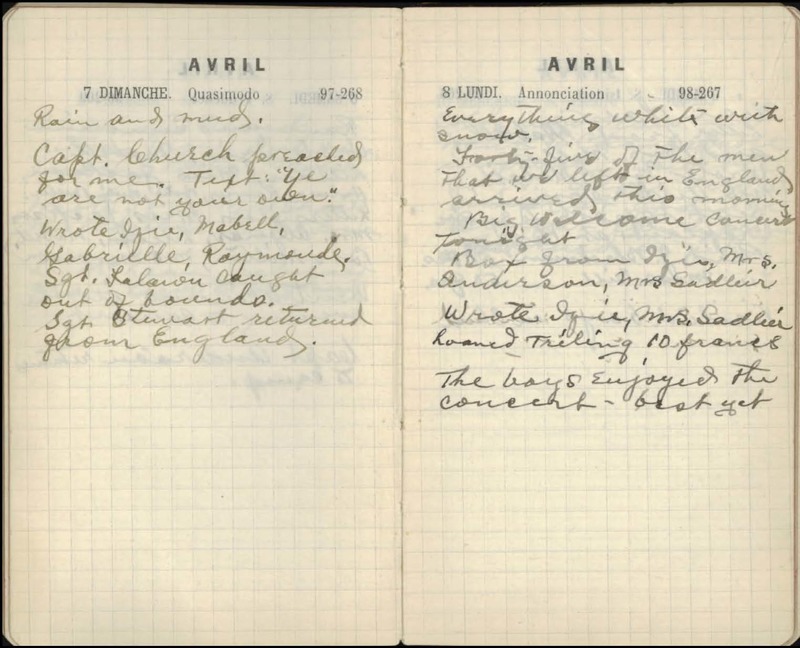 AVRIL
7 DIMANCHE. Quasimodo 97-268
Rain and mud.
Capt. Church preached
for me. Text: "Ye
are not your own."
Wrote Izie, Mabell,
Gabrielle, Raymonde.
Sgt. caught
out of bounds.
Sgt Stewart returned
from England.
AVRIL
8 LUNDI. Annonciation 98-267
Everything white with
snow.
Forty-five of the men
that we left in England
arrived this morning
Big Welcome Concert
tonight
Box from Izie, Mrs.
Anderson, Mrs Sadleir
Wrote Izie, Mrs. Sadleir
Loaned 10 francs
The boys enjoyed the
concert - best yet